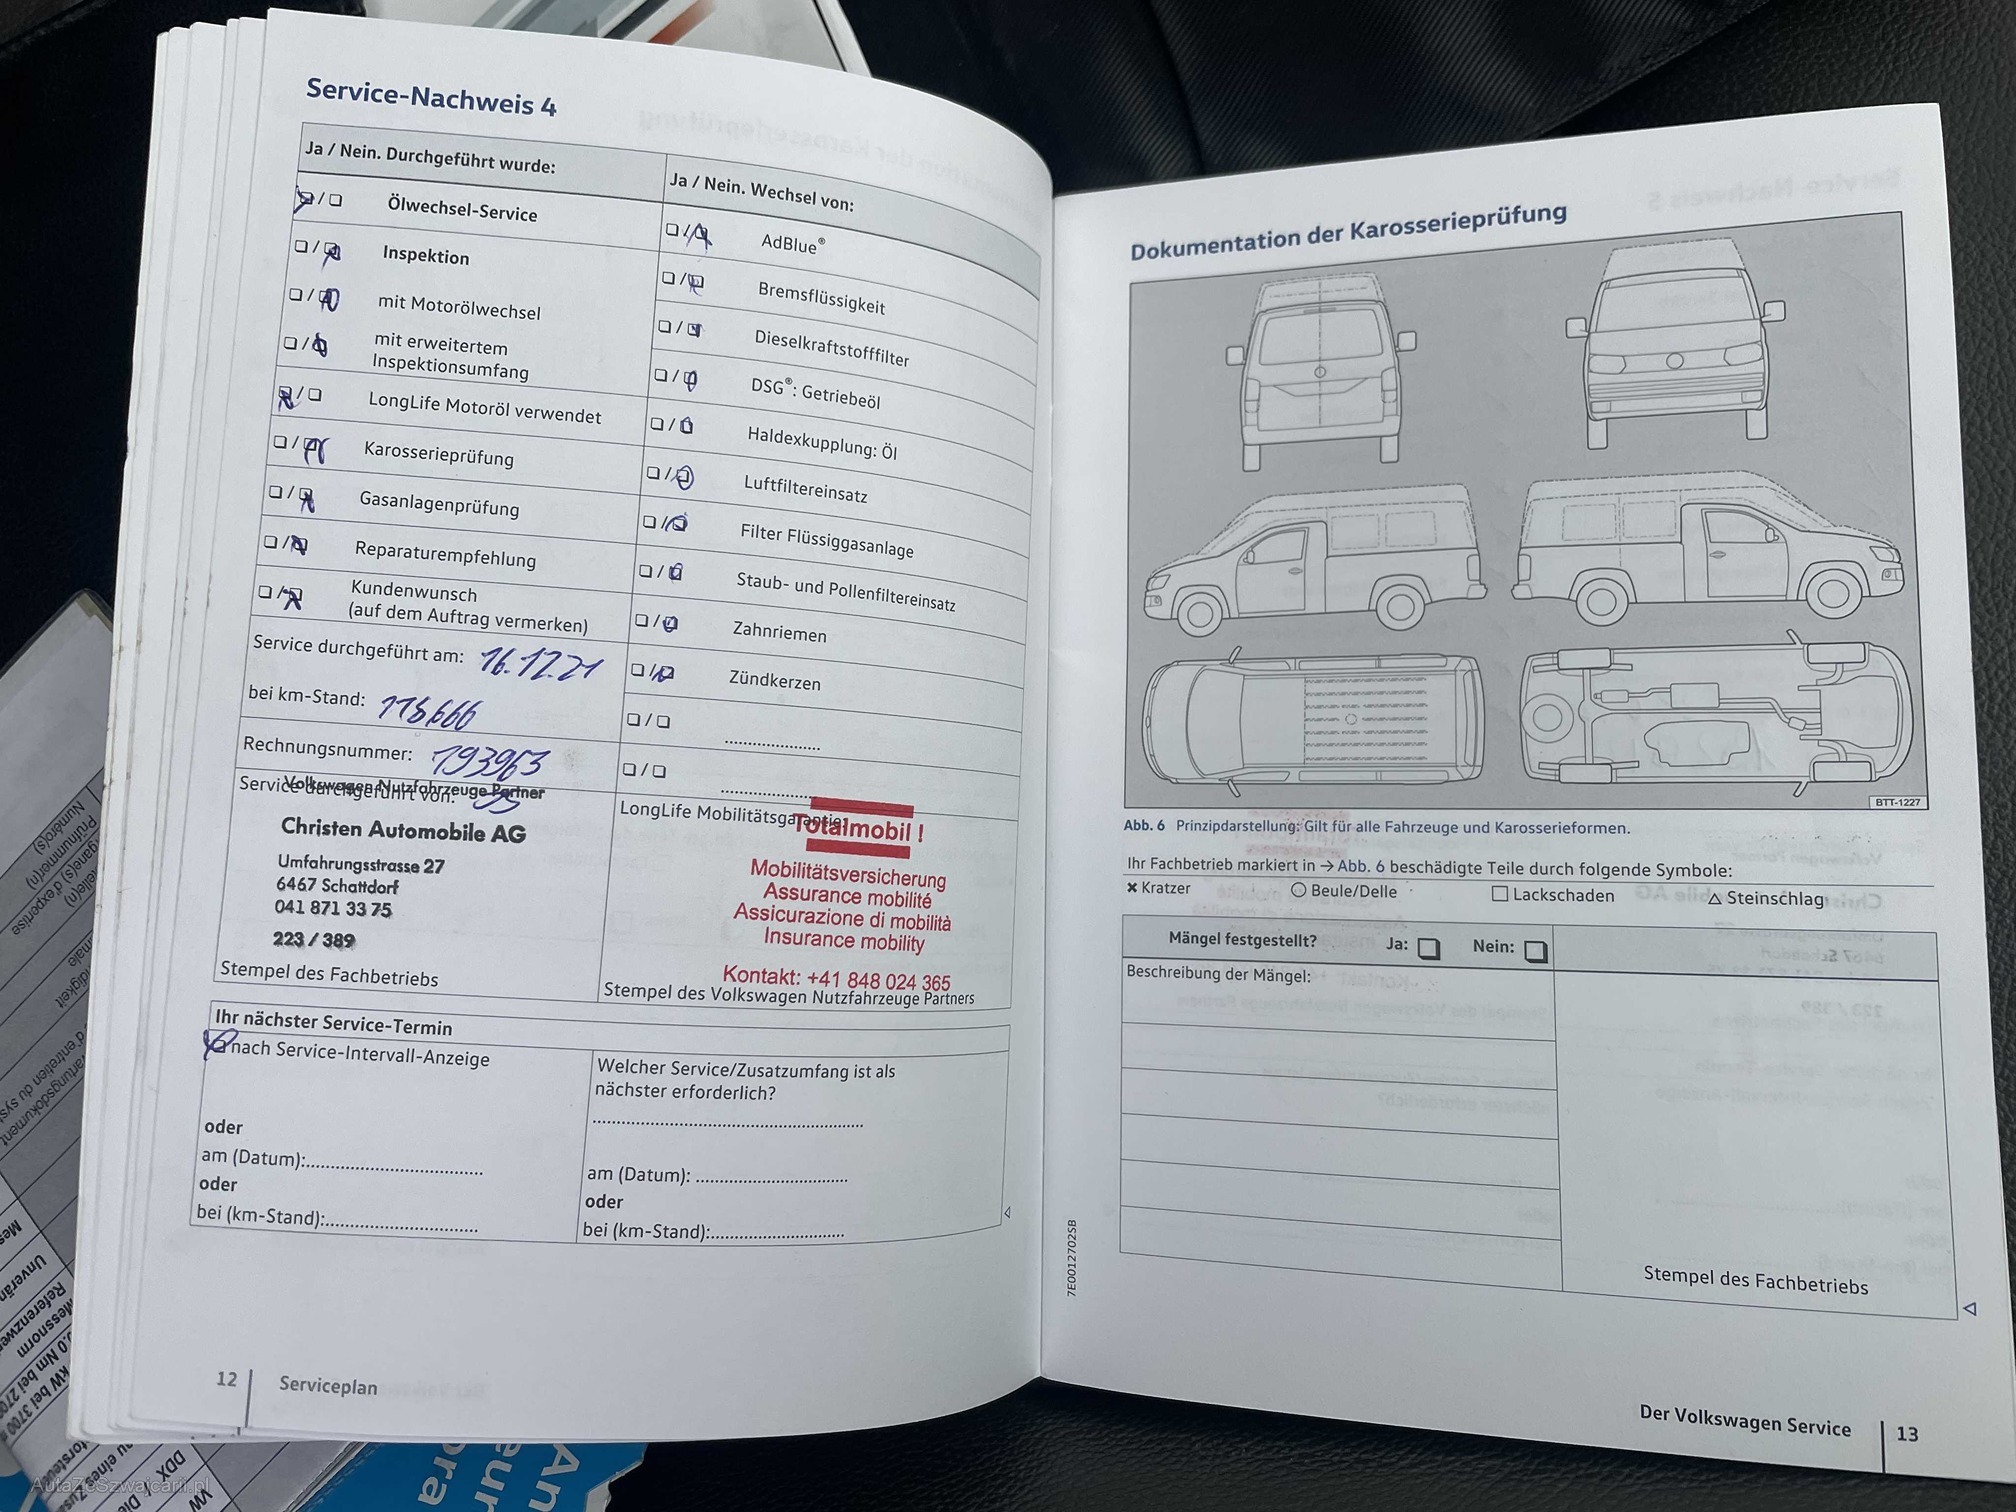 Service-Nachweis 4
Ja / Nein. Durchgeführt wurde:
Ölwechsel-Service
Inspektion
mit Motorölwechsel
mit erweitertem
Inspektionsumfang
LongLife Motoröl verwendet
Karosserieprüfung
Gasanlagenprüfung
Reparaturempfehlung
Kundenwunsch
(auf dem Auftrag vermerken)
Service durchgeführt am: 16.12.21
bei km-Stand:
Rechnungsnummer: 193963
Service durchgeführt von:
Volkswagen Nutzfahrzeuge Partner
Christen Automobile AG
Umfahrungsstrasse 27
6467 Schattdorf
041 871 33 75
223 / 389
Stempel des Fachbetriebs
Ja / Nein. Wechsel von:
AdBlue®
Bremsflüssigkeit
Dieselkraftstofffilter
DSG®: Getriebeöl
Haldexkupplung: Öl
Luftfiltereinsatz
Filter Flüssiggasanlage
Staub- und Pollenfiltereinsatz
Zahnriemen
Zündkerzen
LongLife Mobilitätsgarantie:
Totalmobil !
Mobilitätsversicherung
Assurance mobilité
Assicurazione di mobilità
Insurance mobility
Kontakt: +41 848 024 365
Stempel des Volkswagen Nutzfahrzeuge Partners
Ihr nächster Service-Termin
nach Service-Intervall-Anzeige
oder
am (Datum):
oder
bei (km-Stand):
Welcher Service/Zusatzumfang ist als
nächster erforderlich?
am (Datum):
oder
bei (km-Stand):
12 Serviceplan
Dokumentation der Karosserieprüfung
BTT-1227
Abb. 6 Prinzipdarstellung: Gilt für alle Fahrzeuge und Karosserieformen.
Ihr Fachbetrieb markiert in → Abb. 6 beschädigte Teile durch folgende Symbole:
Kratzer Beule/Delle Lackschaden Steinschlag
Mängel festgestellt? Ja: Nein:
Beschreibung der Mängel:
Stempel des Fachbetriebs
7E0012702SB
Der Volkswagen Service 13
AutaZeSzwajcarii.pl